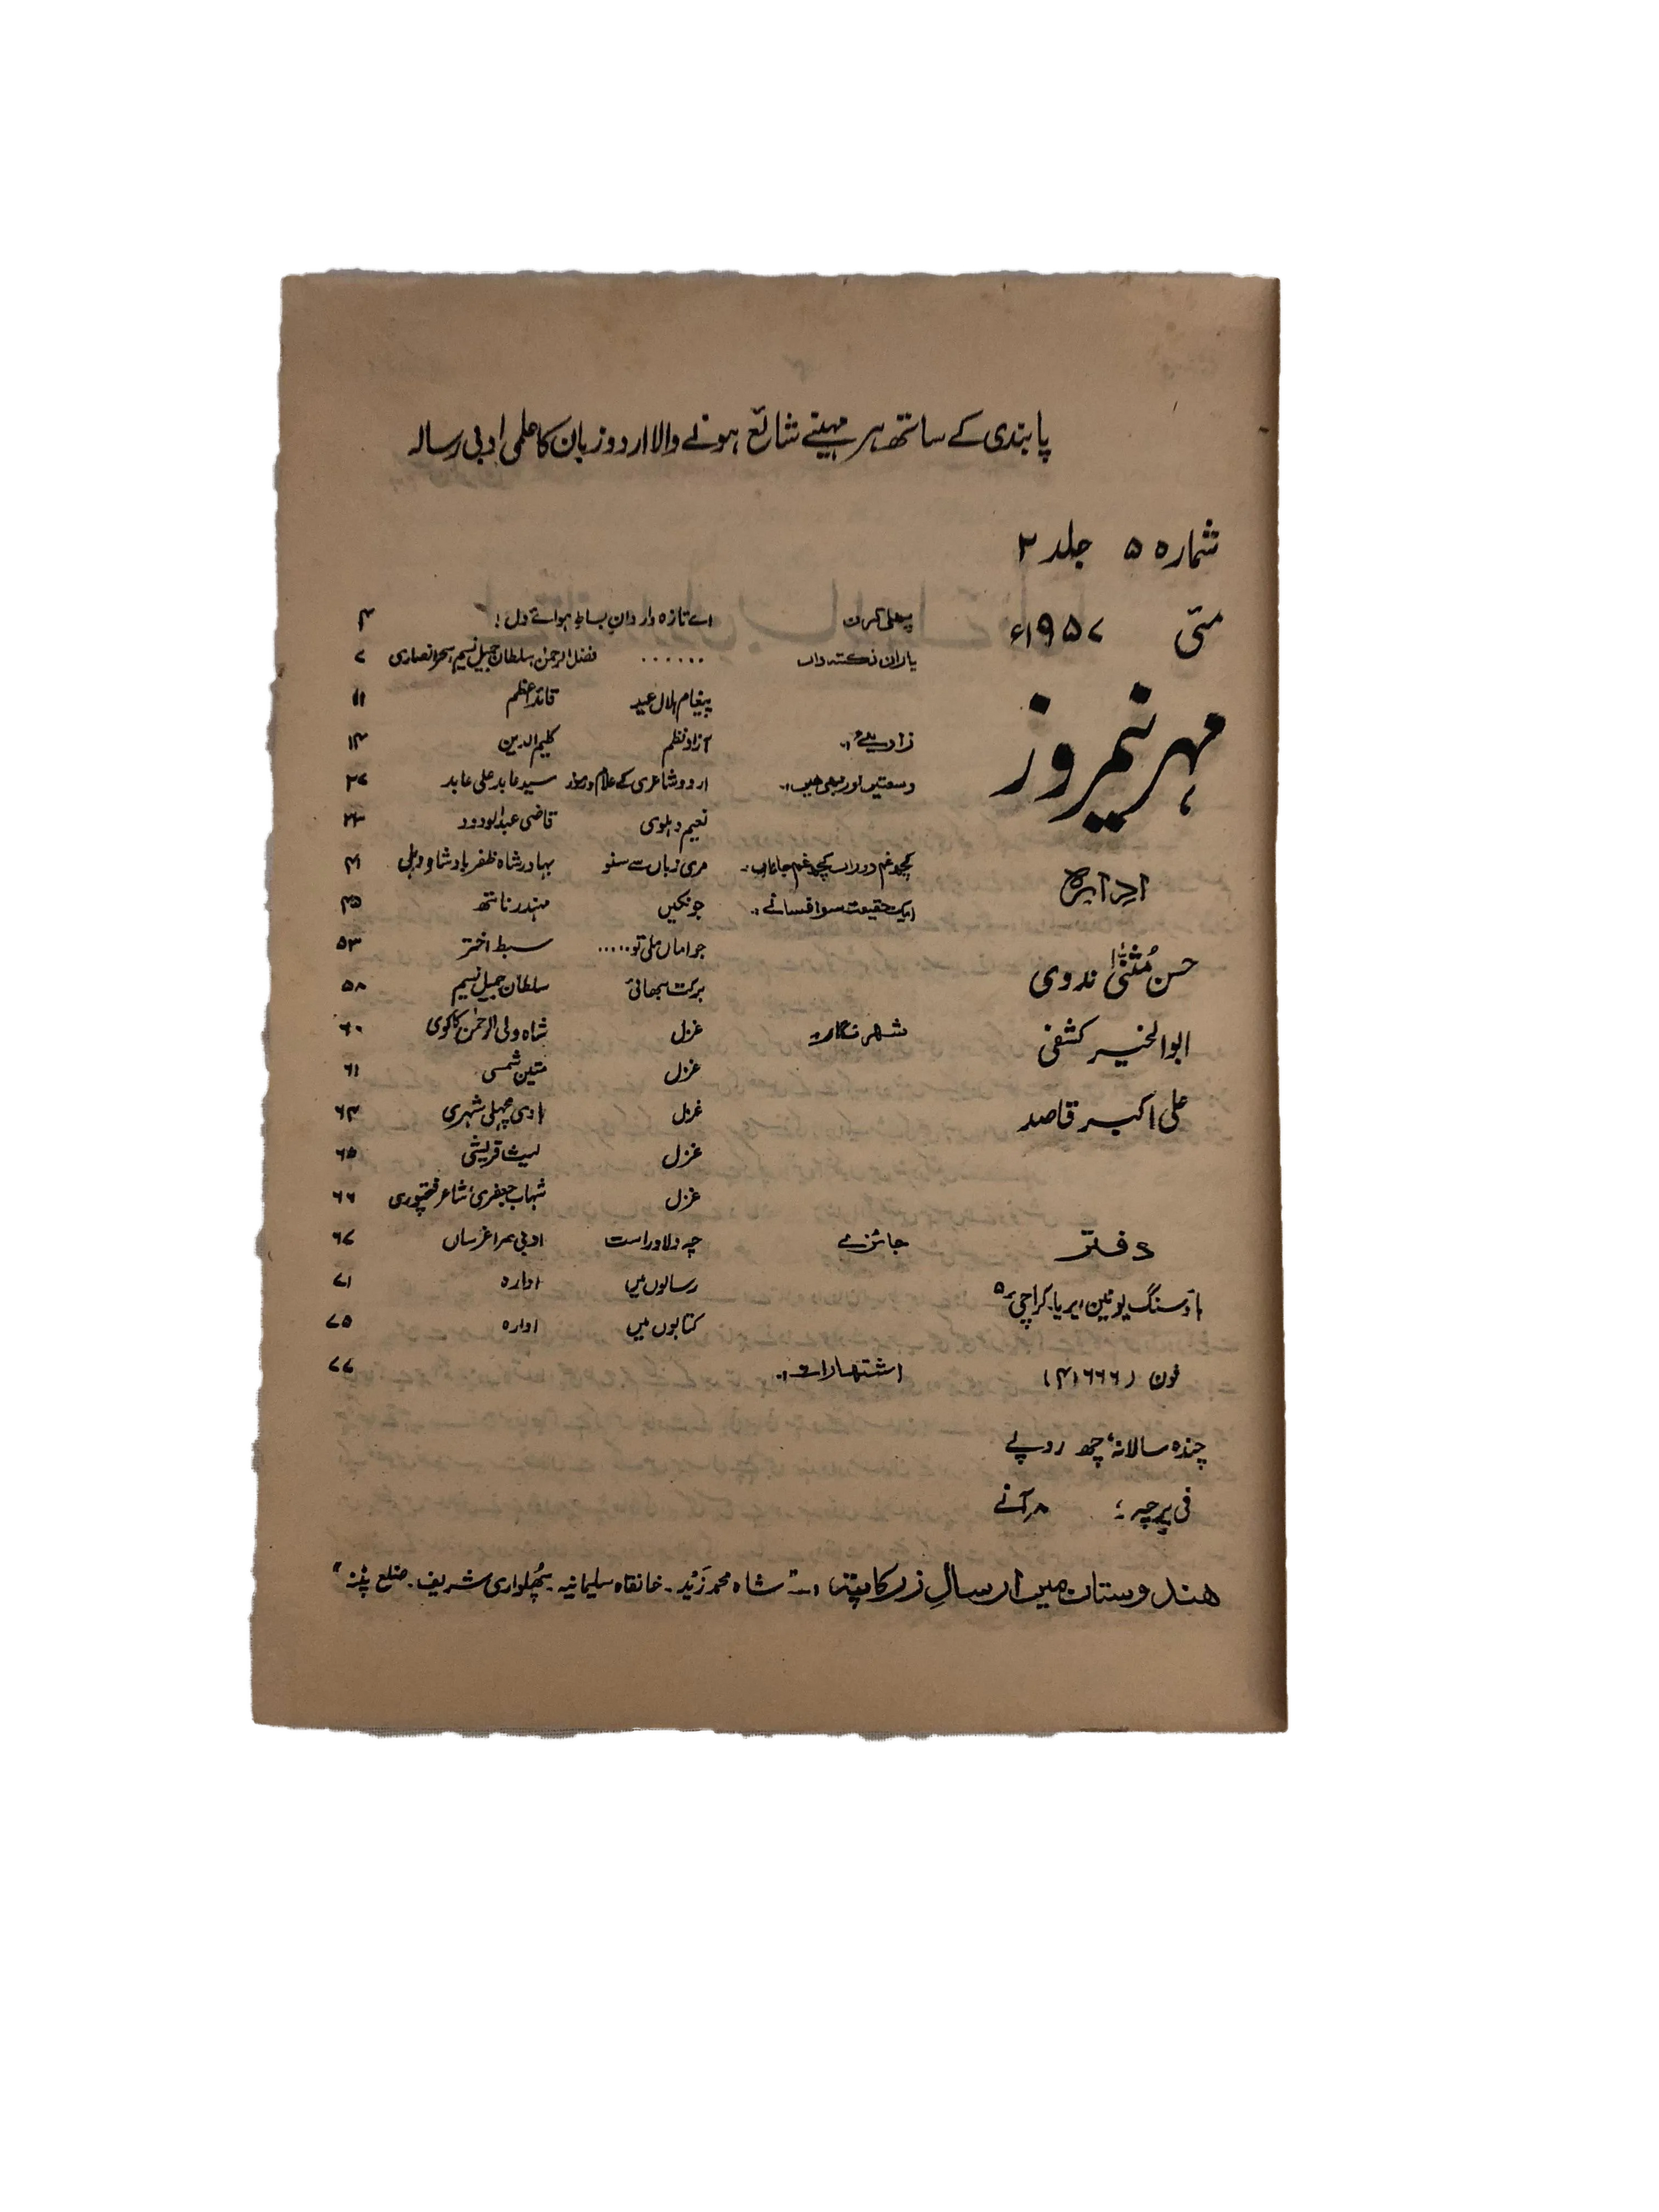 پابندی کے ساتھ ہر مہینے شائع ہونے والا اردو زبان کا علمی ادبی رسالہ
شمارہ ۵ جلد ۲
مئی ۱۹۵۷ء
مہر نیمروز
ادارہ
حسن مُثنیٰ ندوی
ابوالخیر کشفی
علی اکبر قاصد
دفتر
ہاؤسنگ یونین ایریا۔ کراچی ۵
فون (۴۱۶۶۶)
چندہ سالانہ، چھ روپے
فی پرچہ : ۸ر آنے
پہلی کرن اے تازہ واردانِ بساطِ ہوائے دل! ۴
یاران نکتہ داں ...... فضل الرحمٰن، سلطان جمیل نسیم، سحر انصاری ۷
پیغام ہلال عید قائد اعظم ۱۱
زاویے آزاد نظم کلیم الدین ۱۴
وسعتیں اور بھی ہیں اردو شاعری کے علائم و رموز سید عابد علی عابد ۲۷
نعیم دہلوی قاضی عبدالودود ۳۳
کچھ غم دوراں کچھ غم جاناں مری زباں سے سنو بہادر شاہ ظفر بادشاہ دہلی ۴۱
ایک حقیقت سو افسانے جونکیں مہندر ناتھ ۴۵
جو اماں ملی تو..... سبط اختر ۵۳
برکت بھائی سلطان جمیل نسیم ۵۸
شہر نگار غزل شاہ ولی الرحمٰن کاکوی ۶۰
غزل متین شمسی ۶۱
غزل ہادی مچھلی شہری ۶۴
غزل لیث قریشی ۶۵
غزل شہاب جعفری، شاعر فتحپوری ۶۶
جائزے چہ دلاور است ادبی سراغرساں ۶۷
رسالوں میں ادارہ ۷۱
کتابوں میں ادارہ ۷۵
اشتہارات ۷۷
ہندوستان میں ارسالِ زر کا پتہ :- شاہ محمد زَید۔ خانقاہ سلیمانیہ۔ پُھلواری شریف۔ ضلع پٹنہ